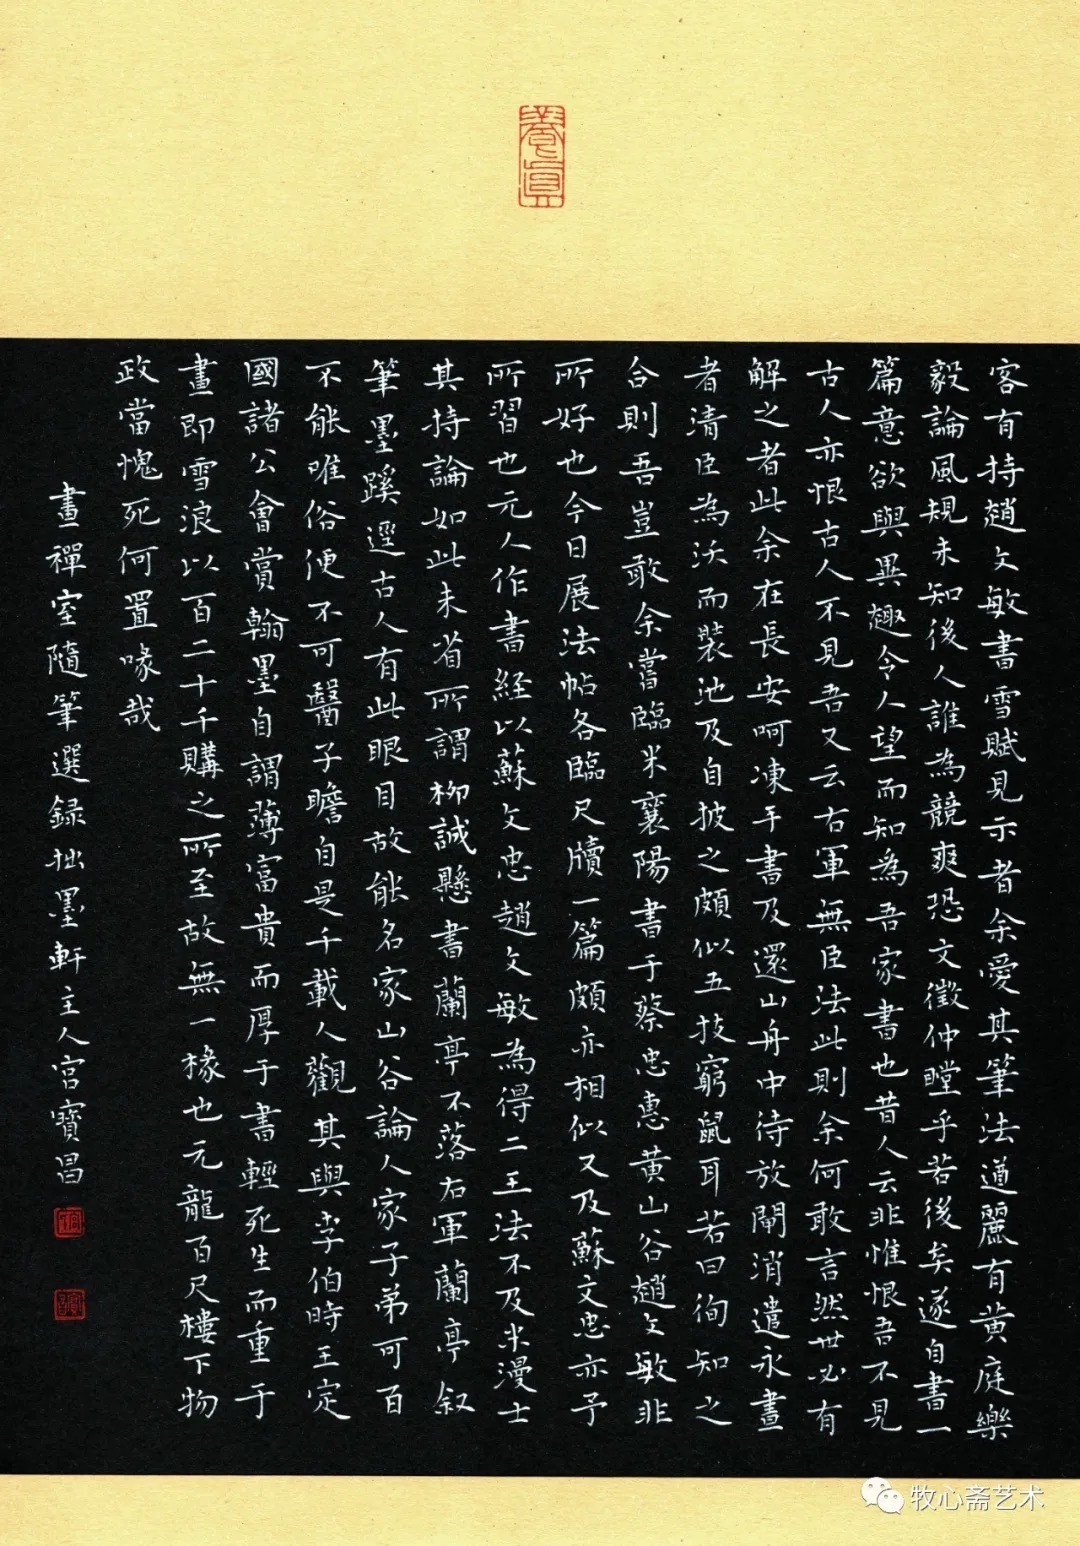 養真
客有持趙文敏書雪賦見示者余愛其筆法遒麗有黄庭樂
毅論風規未知後人誰為競爽恐文徵仲瞠乎若後矣遂自書一
篇意欲與異趣令人望而知為吾家書也昔人云非惟恨吾不見
古人亦恨古人不見吾又云右軍無臣法此則余何敢言然世必有
解之者此余在長安呵凍手書及還山舟中待放閘消遣永晝
者清臣為沃而裝池及自披之頗似五技窮鼠耳若曰徇知之
合則吾豈敢余嘗臨米襄陽書于蔡忠惠黄山谷趙文敏非
所好也今日展法帖各臨尺牘一篇頗亦相似又及蘇文忠亦予
所習也元人作書経以蘇文忠趙文敏為得二王法不及米漫士
其持論如此未省所謂柳誠懸書蘭亭不落右軍蘭亭叙
筆墨蹊逕古人有此眼目故能名家山谷論人家子弟可百
不能唯俗便不可醫子瞻自是千載人觀其與李伯時王定
國諸公會賞翰墨自謂薄富貴而厚于書輕死生而重于
畫即雪浪以百二十千購之所至故無一椽也元龍百尺樓下物
政當愧死何置喙哉
畫禪室隨筆選録拙墨軒主人宫寶昌
牧心斋艺术